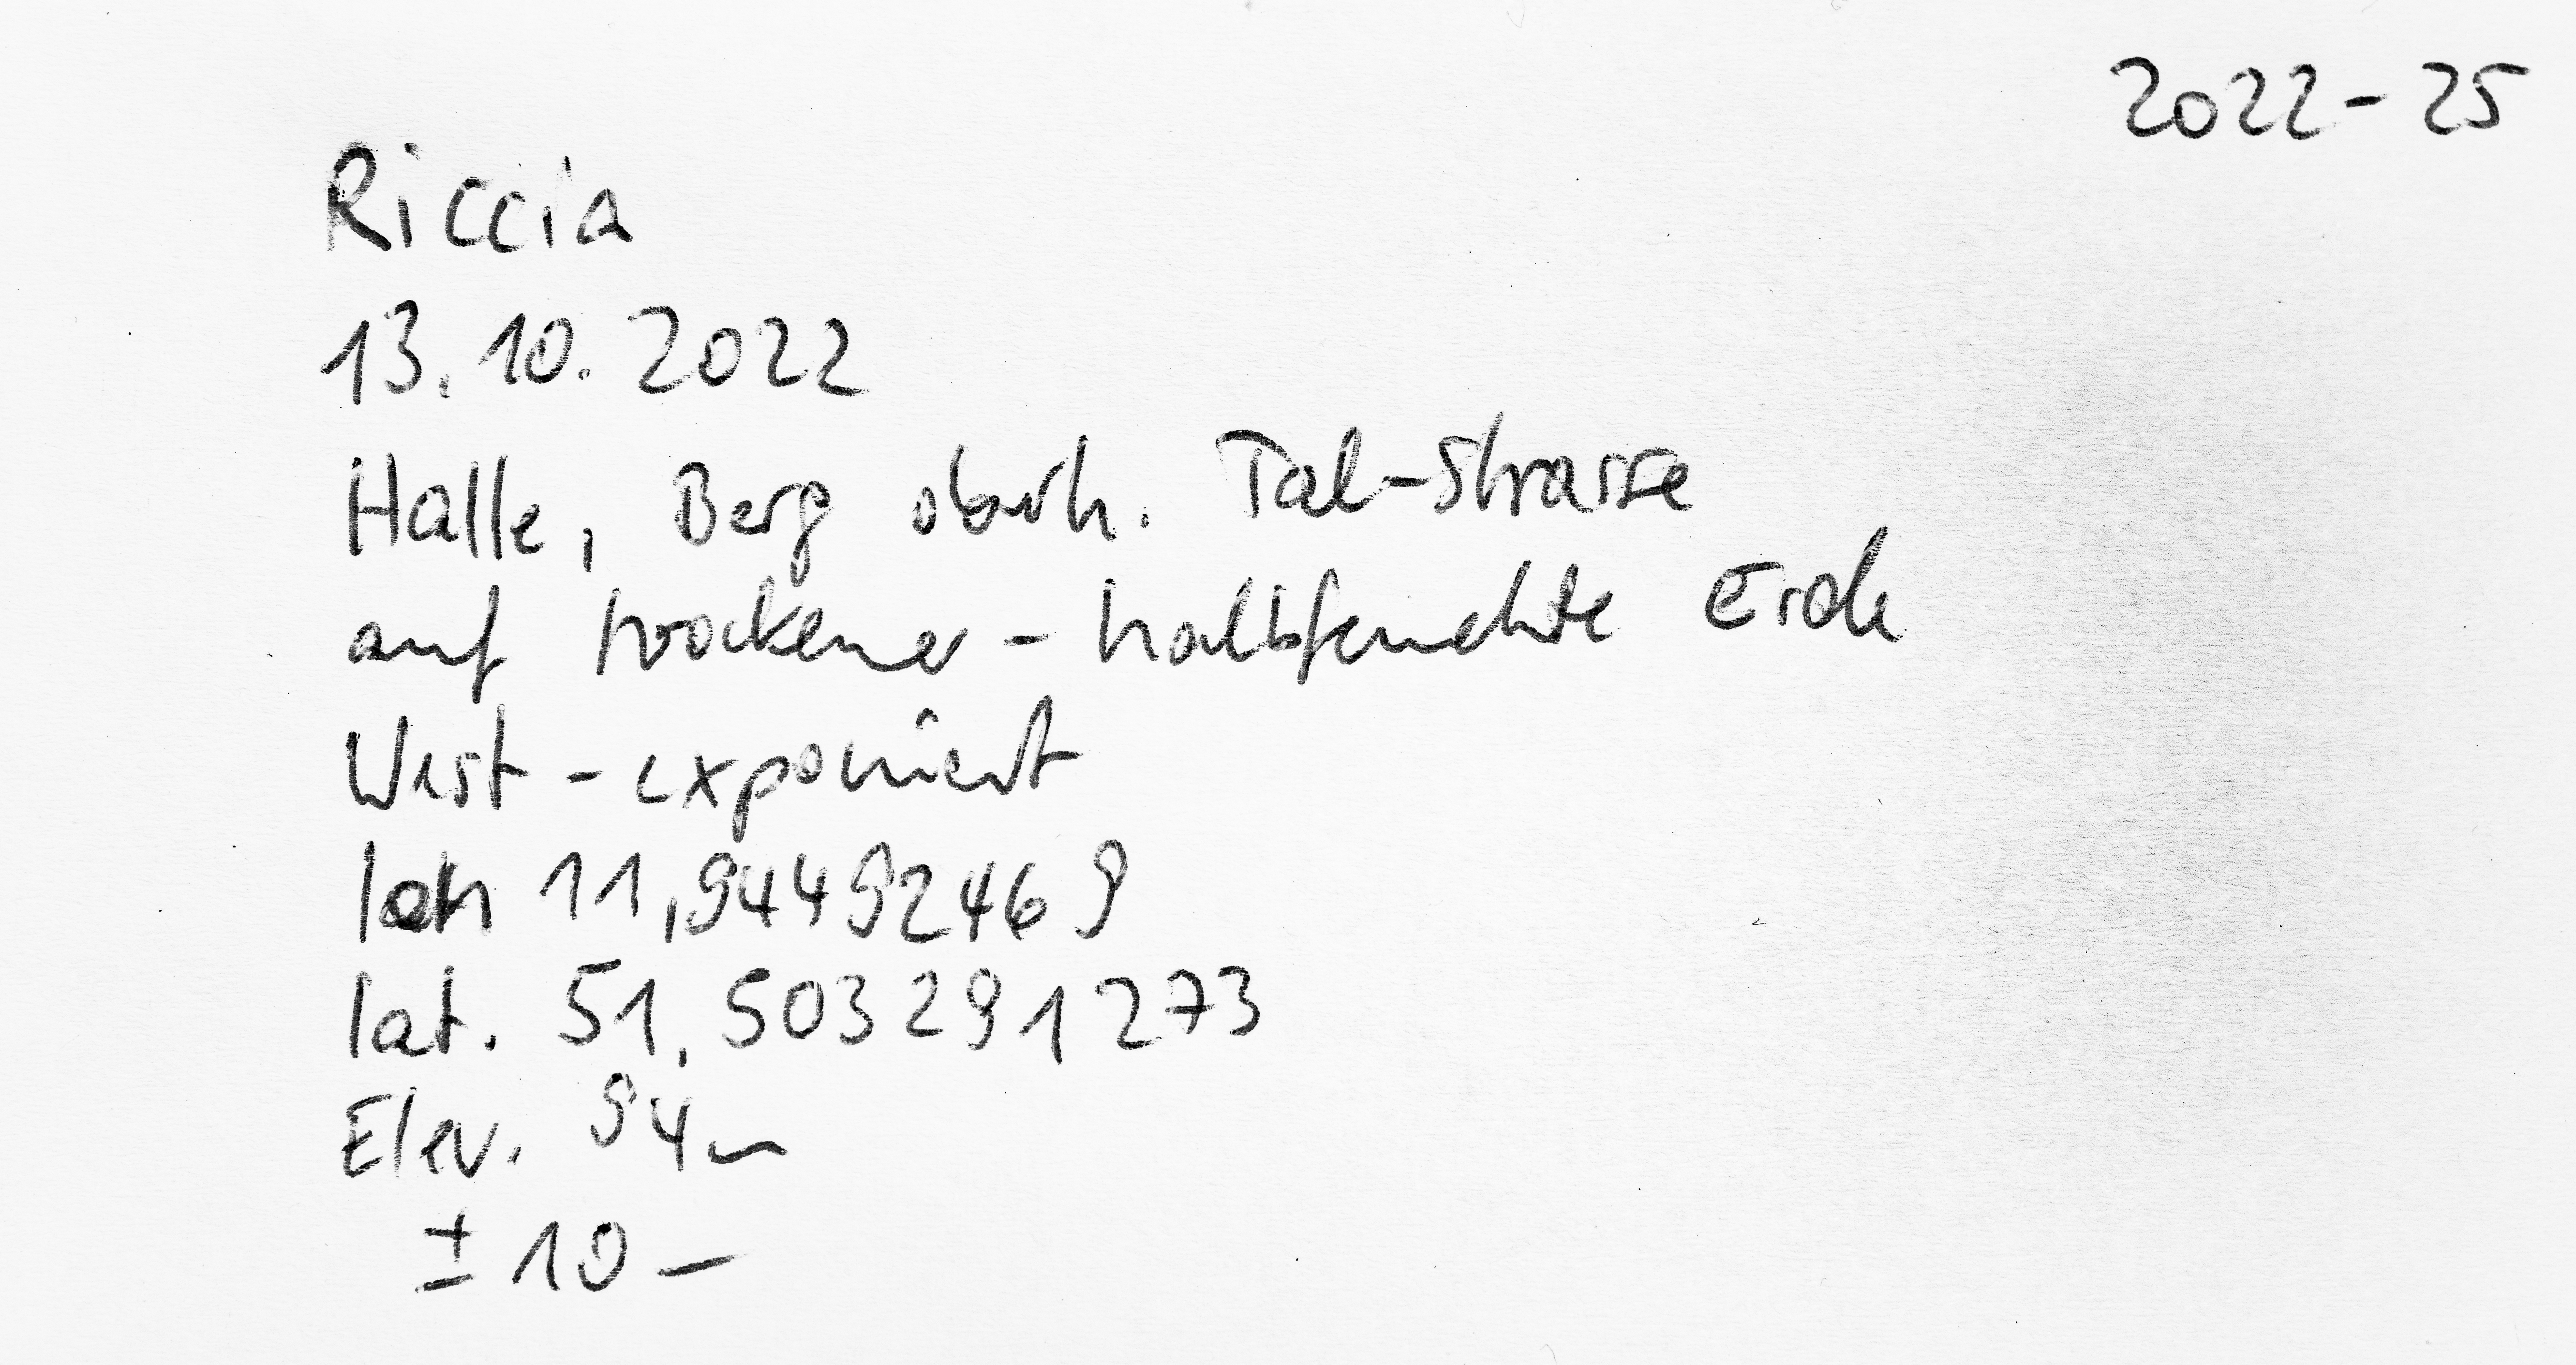 2022-25
Riccia
13.10.2022
Halle, Berg oberh. Tal-Strasse
auf trockener - halbfeuchte Erde
West-exponiert
lon 11,944992469
lat. 51,503291273
Elev. 94m
± 10 m